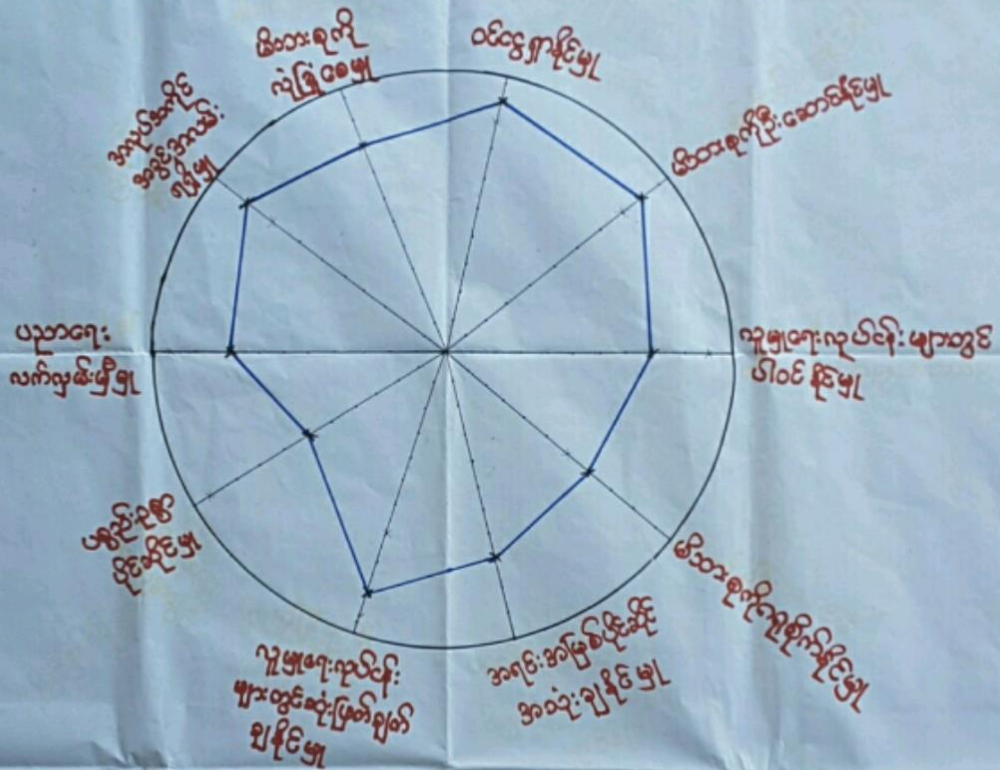 မိသားစုကို
လုံခြုံစေမှု
ဝင်ငွေရှာနိုင်မှု
မိသားစုကိုဦးဆောင်နိုင်မှု
လူမှုရေးလုပ်ငန်းများတွင်
ပါဝင်နိုင်မှု
မိသားစုကိုကူစိုက်နိုင်မှု
အရင်းအမြစ်ပိုင်ဆိုင်
အသုံးချနိုင်မှု
လူမှုရေးလုပ်ငန်း
များတွင်ဆုံးဖြတ်ချက်
ချနိုင်မှု
ပစ္စည်းဥစ္စာ
ပိုင်ဆိုင်မှု
ပညာရေး
လက်လှမ်းမှီမှု
အလုပ်အကိုင်
အခွင့်အလမ်း
ရရှိမှု